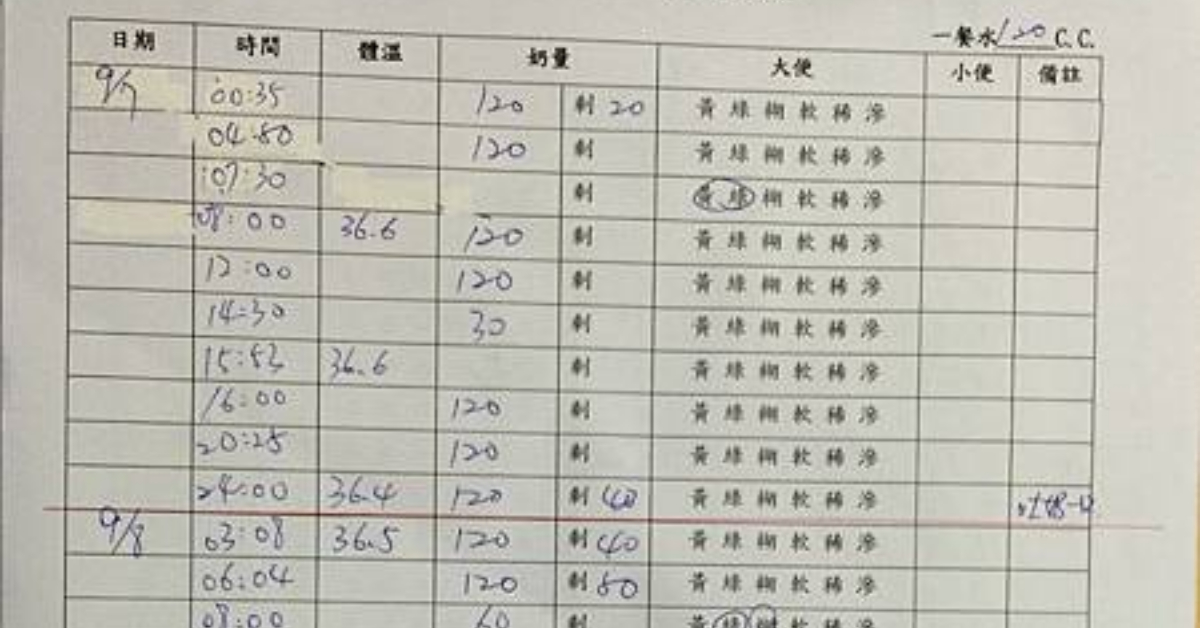 一餐水120C.C.
日期 時間 體溫 奶量 大便 小便 備註
9/7 00:35 120 剩 20 黃 綠 糊 軟 稀 滲
04:50 120 剩 黃 綠 糊 軟 稀 滲
07:30 剩 黃 綠 糊 軟 稀 滲
08:00 36.6 120 剩 黃 綠 糊 軟 稀 滲
12:00 120 剩 黃 綠 糊 軟 稀 滲
14:30 30 剩 黃 綠 糊 軟 稀 滲
15:53 36.6 剩 黃 綠 糊 軟 稀 滲
16:00 120 剩 黃 綠 糊 軟 稀 滲
20:25 120 剩 黃 綠 糊 軟 稀 滲
24:00 36.4 120 剩 40 黃 綠 糊 軟 稀 滲
9/8 03:08 36.5 120 剩 40 黃 綠 糊 軟 稀 滲
06:04 120 剩 80 黃 綠 糊 軟 稀 滲
08:00 60 剩 黃 綠 糊 軟 稀 滲